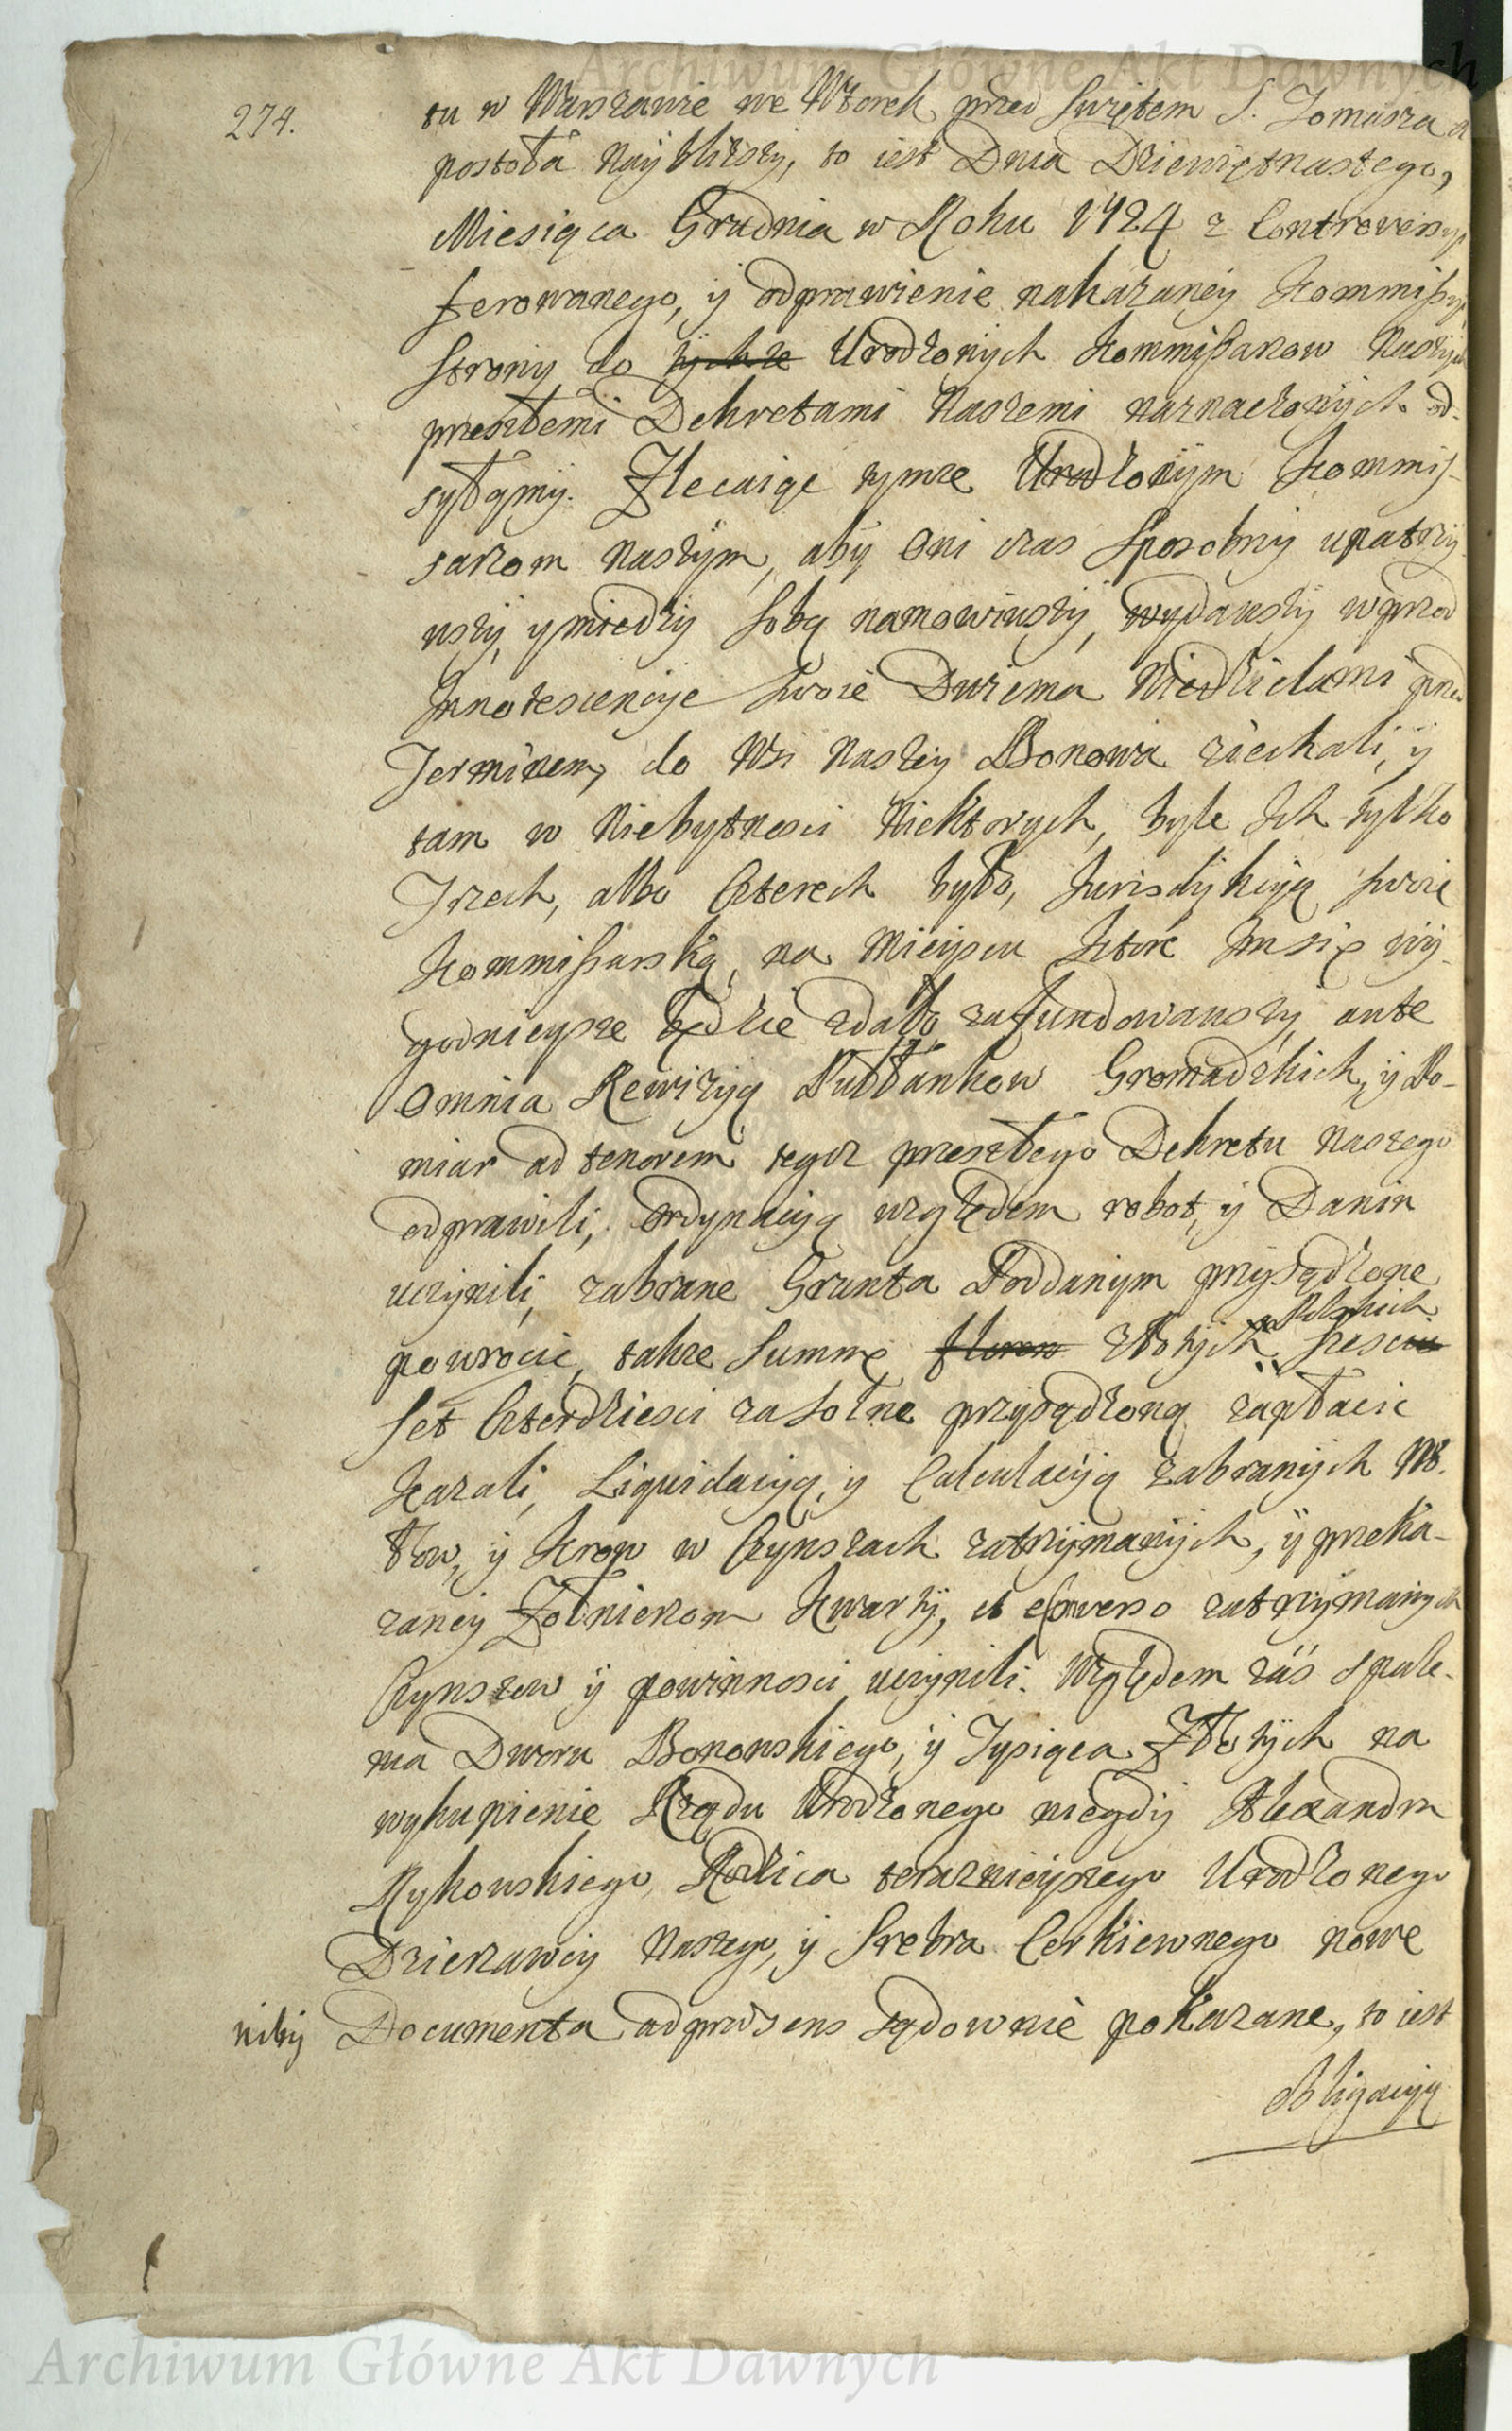 Archiwum Główne Akt Dawnych
274.
tu w Warszawie we Wtorek przed Swiętem S. Tomasza a
postoła Nayblizszy, to iest Dnia Dziewiętnastego,
Miesiąca Grudnia w Roku 1724 z Controversyi
ferowanego, y odprawienie nakazaney Kommissyi
Strony do tychze Urodzonych Kommissarzow Naszych
przeszłemi Dekretami Naszemi naznaczonych od-
syłamy. Zlecaiąc tymze Urodzonym Kommis-
sarzom Naszym, aby Oni czas sposobny upatrzy-
wszy, y miedzy sobą namowiwszy, wydawszy wprzod
Innotescencye swoie Dwiema Niedzielami przed
Terminem, do Wsi Naszey Bonowa ziechali, y
tam w Niebytnosci Niektorych, byle Ich tylko
Trzech, albo Czterech było, Jurisdykcyą swoię
Kommissarską, na Mieyscu Ktore Im się wy-
godnieysze będzie zdało zafundowawszy, ante
Omnia Rewizyą Pułłankow Gromadzkich, y Po-
miar ad tenorem tegoz przeszłego Dekretu Naszego
odprawili, Ordynacyą względem robot, y Danin
uczynili, zabrane Grunta Poddanym przysądzone
powrocic, takze Summę floren Złotych Polskich szesciu
Set Czterdziesci za Solne przysądzoną zapłacic
Kazali, Liquidacyą, y Calculacyą zabranych Wo-
łow, y Krow w Czynszach zatrzymanych, y przeka-
zaney Zołnierzom Kwarty, et e converso zatrzymanych
Czynszow y powinnosci uczynili. Względem zas spale-
nia Dworu Bonowskiego, y Tysiąca Złotych na
wykupienie Rządu Urodzonego niegdy Alexandra
Rykowskiego, Rodzica teraznieyszego Urodzonego
Dzierzawcy Naszego, y Srebra Cerkiewnego nowe
niby Documenta ad praesens sądownie pokazane, to iest
obligacyą
Archiwum Główne Akt Dawnych